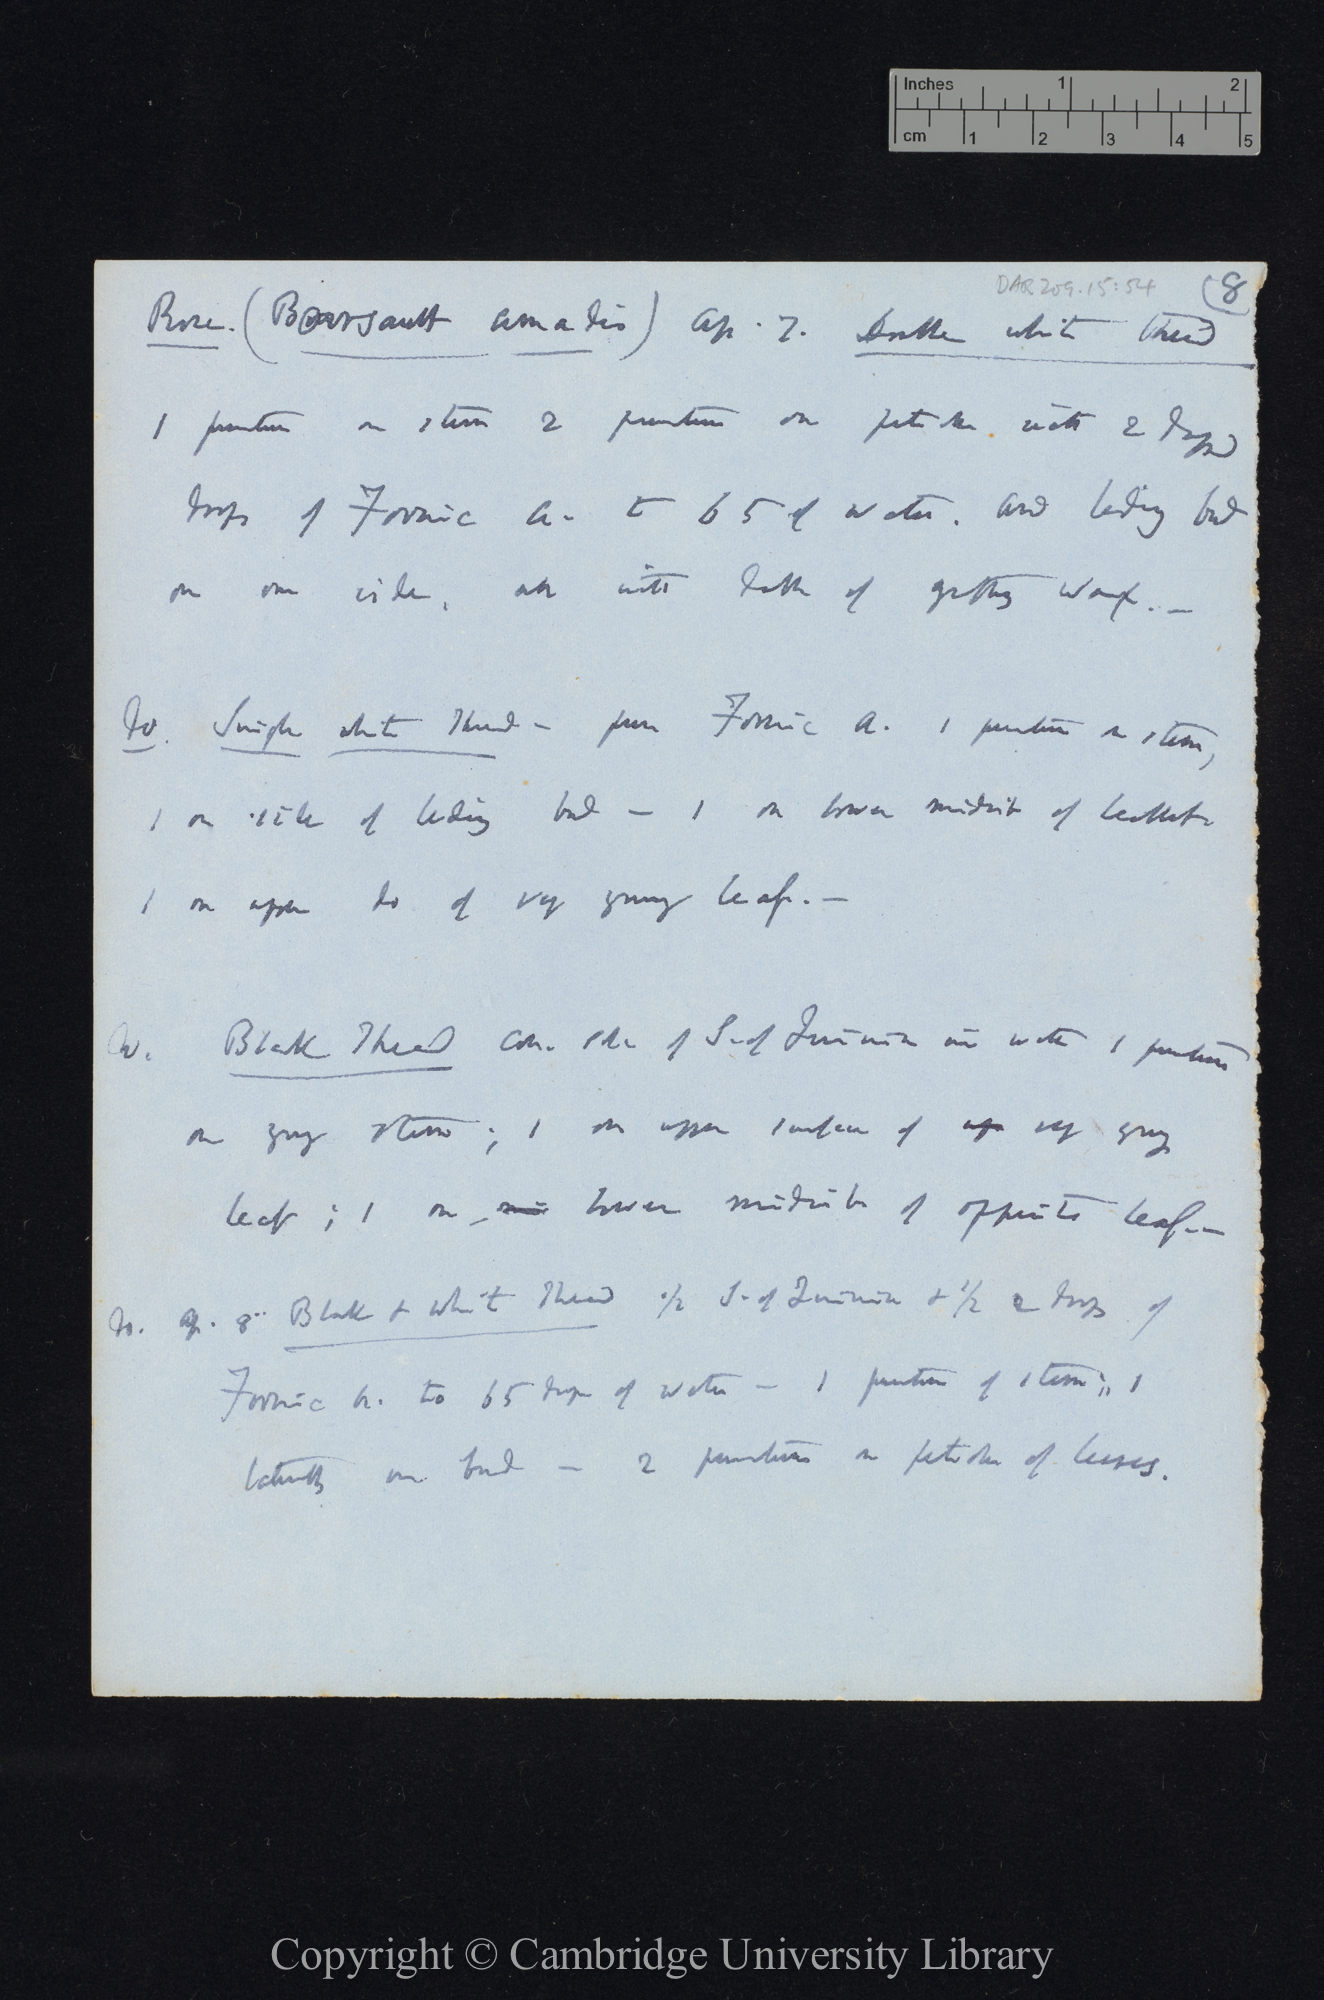 Inches 1 2
cm 1 2 3 4 5
DAR 209.15:54 (8
Rose. (Boursault amadis) Ap. 7. Double white thread
1 puncture on stem 2 punctures on petioles with 2
drops of Formic a. to 65 of water. and leading bud
on one side, also with of grafting wax. —
Do. Single white Thread — pure Formic a. 1 puncture on stem,
1 on side of leading bud — 1 on lower midrib of leaflet
1 on upper do of very young leaf. —
Do. Black Thread con. sol. of S. of Quinine in water 1 puncture
on young stem; 1 on upper surface of up very young
leaf; 1 on mi lower midrib of opposite leaf. —
Do. Ap. 8 Black & White Thread 1/2 S. of Quinine & 1/2 2 drops of
Formic a. to 65 drops of water — 1 puncture of stem; 1
laterally on bud — 2 punctures on petioles of leaves.
Copyright © Cambridge University Library